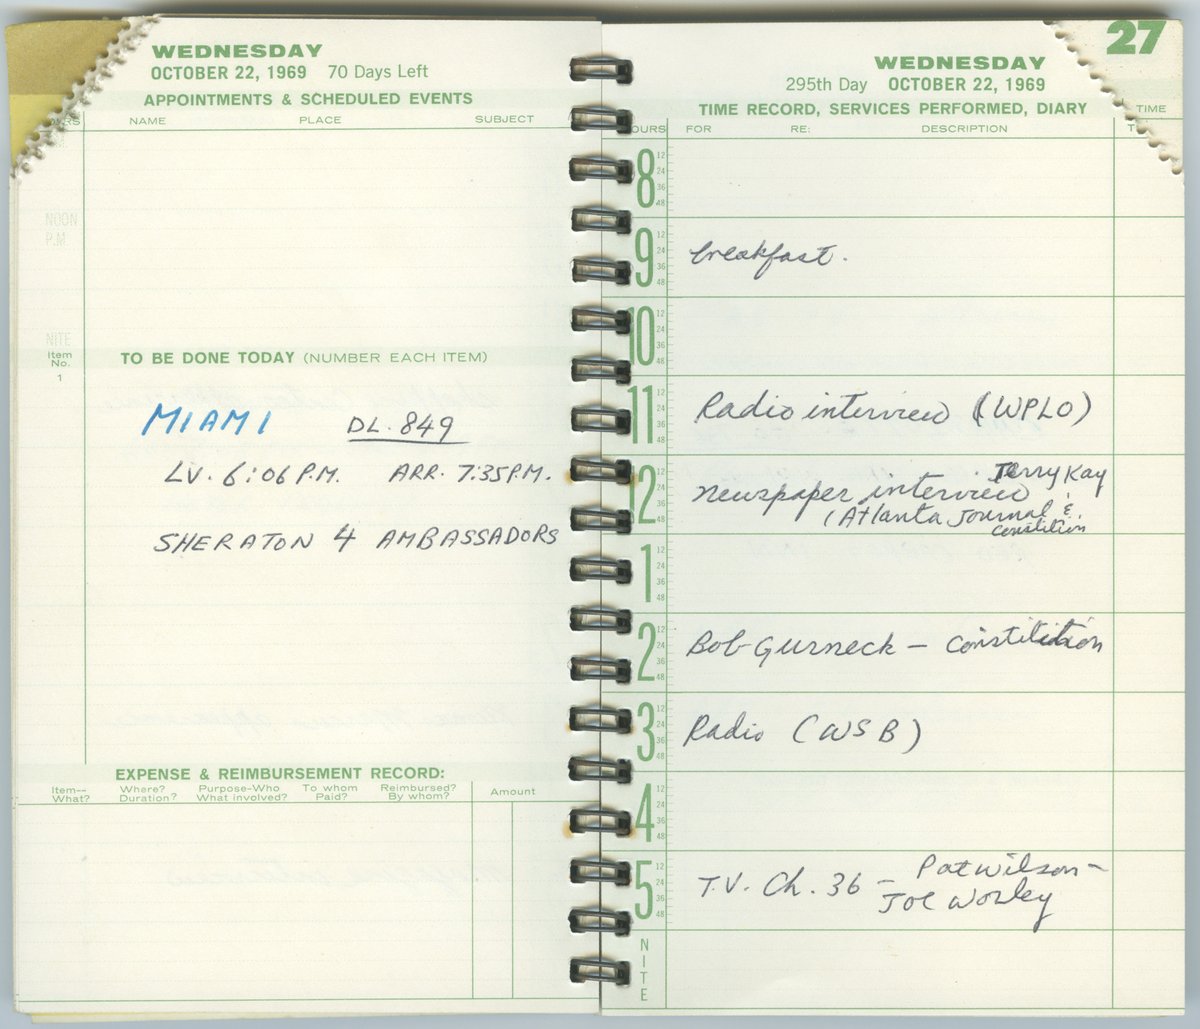 WEDNESDAY
OCTOBER 22, 1969 70 Days Left
APPOINTMENTS & SCHEDULED EVENTS
NAME PLACE SUBJECT
NOON
P.M.
NITE
Item
No.
TO BE DONE TODAY (NUMBER EACH ITEM)
1
MIAMI DL. 849
LV. 6:06 P.M. ARR. 7:35 P.M.
SHERATON 4 AMBASSADORS
EXPENSE & REIMBURSEMENT RECORD:
Item-- Where? Purpose-Who To whom Reimbursed? Amount
What? Duration? What involved? Paid? By whom?
27
WEDNESDAY
295th Day OCTOBER 22, 1969
TIME RECORD, SERVICES PERFORMED, DIARY
TIME
OURS FOR RE: DESCRIPTION
8 12 24 36 48
9 12 24 36 48
breakfast.
10 12 24 36 48
11 12 24 36 48
Radio interview (WPLO)
12 12 24 36 48
newspaper interview Terry Kay
(Atlanta Journal &
Constition
1 12 24 36 48
2 12 24 36 48
Bob Gurneck – Constitution
3 12 24 36 48
Radio (WSB)
4 12 24 36 48
5 12 24 36 48
T.V. Ch. 36 – Pat Wilson –
Joe Worley
NITE